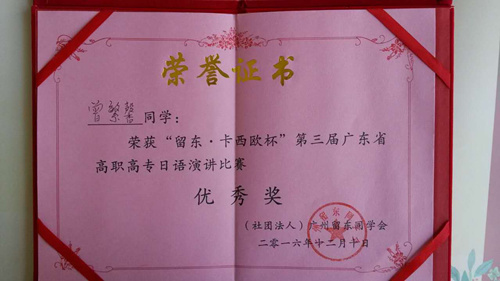 荣誉证书
曾繁馨同学：
荣获“留东·卡西欧杯”第三届广东省
高职高专日语演讲比赛
优秀奖
（社团法人）广州留东同学会
二零一六年十二月十日